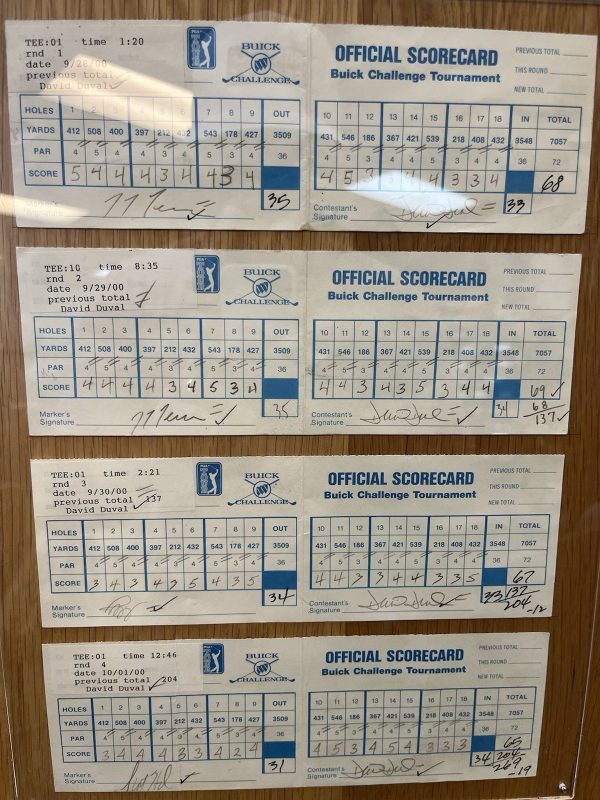 TEE:01 time 1:20
rnd 1
date 9/28/00
previous total
David Duval
PGA TOUR
BUICK
CHALLENGE
OFFICIAL SCORECARD
Buick Challenge Tournament
PREVIOUS TOTAL
THIS ROUND
NEW TOTAL
HOLES 1 2 3 4 5 6 7 8 9 OUT 10 11 12 13 14 15 16 17 18 IN TOTAL
YARDS 412 508 400 397 212 432 543 178 427 3509 431 546 186 367 421 539 218 408 432 3548 7057
PAR 4 5 4 4 3 4 5 3 4 36 4 5 3 4 4 5 3 4 4 36 72
SCORE 5 4 4 4 3 4 4 3 4 4 5 3 3 4 4 3 3 4 68
35 33
Signature
Contestant's
Signature
TEE:10 time 8:35
rnd 2
date 9/29/00
previous total
David Duval
PGA TOUR
BUICK
CHALLENGE
OFFICIAL SCORECARD
Buick Challenge Tournament
PREVIOUS TOTAL
THIS ROUND
NEW TOTAL
HOLES 1 2 3 4 5 6 7 8 9 OUT 10 11 12 13 14 15 16 17 18 IN TOTAL
YARDS 412 508 400 397 212 432 543 178 427 3509 431 546 186 367 421 539 218 408 432 3548 7057
PAR 4 5 4 4 3 4 5 3 4 36 4 5 3 4 4 5 3 4 4 36 72
SCORE 4 4 4 4 3 4 5 3 4 4 4 3 4 3 5 3 4 4 69
35 34 68
137
Marker's
Signature
Contestant's
Signature
TEE:01 time 2:21
rnd 3
date 9/30/00
previous total 137
David Duval
PGA TOUR
BUICK
CHALLENGE
OFFICIAL SCORECARD
Buick Challenge Tournament
PREVIOUS TOTAL
THIS ROUND
NEW TOTAL
HOLES 1 2 3 4 5 6 7 8 9 OUT 10 11 12 13 14 15 16 17 18 IN TOTAL
YARDS 412 508 400 397 212 432 543 178 427 3509 431 546 186 367 421 539 218 408 432 3548 7057
PAR 4 5 4 4 3 4 5 3 4 36 4 5 3 4 4 5 3 4 4 36 72
SCORE 3 4 3 4 3 5 4 3 5 4 4 3 3 4 4 3 3 5 67
34 33 137
204 -12
Marker's
Signature
Contestant's
Signature
TEE:01 time 12:46
rnd 4
date 10/01/00
previous total 204
David Duval
PGA TOUR
BUICK
CHALLENGE
OFFICIAL SCORECARD
Buick Challenge Tournament
PREVIOUS TOTAL
THIS ROUND
NEW TOTAL
HOLES 1 2 3 4 5 6 7 8 9 OUT 10 11 12 13 14 15 16 17 18 IN TOTAL
YARDS 412 508 400 397 212 432 543 178 427 3509 431 546 186 367 421 539 218 408 432 3548 7057
PAR 4 5 4 4 3 4 5 3 4 36 4 5 3 4 4 5 3 4 4 36 72
SCORE 3 4 4 4 3 3 4 2 4 4 5 3 4 5 4 3 3 3 65
31 34 204
269 -19
Marker's
Signature
Contestant's
Signature